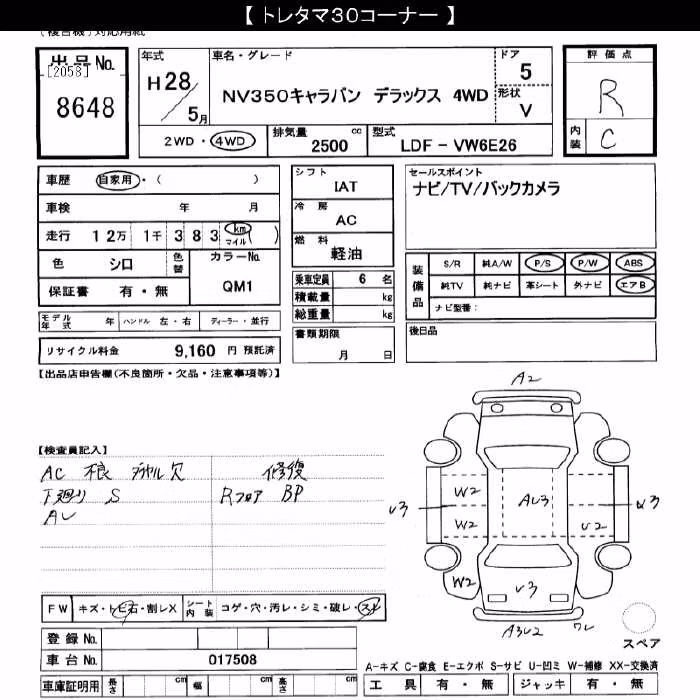 【 トレタマ30コーナー 】
(複合機) 対応用紙
出品No.
[2058]
8648
年式
H28/5月
車名・グレード
NV350キャラバン デラックス 4WD
ドア
5
形状
V
2WD・4WD
排気量 cc
2500
型式
LDF-VW6E26
評価点
R
内装
C
車歴 自家用・( )
車検 年 月
走行 12万 1千 383 km マイル ( )
色 シロ 色替
カラーNo.
QM1
保証書 有・無
シフト
IAT
冷房
AC
燃料
軽油
乗車定員 6 名
積載量 kg
総重量 kg
書類期限
月 日
セールスポイント
ナビ/TV/バックカメラ
装備品
S/R 純A/W P/S P/W ABS
純TV 純ナビ 革シート 外ナビ エアB
ナビ型番:
後日品
モデル年式 年 ハンドル 左・右 ディーラー・並行
リサイクル料金 9,160 円 預託済
【出品店申告欄(不良箇所・欠品・注意事項等)】
【検査員記入】
AC 不良 ダイヤル欠 修復
下廻り S Rフロア BP
AU
A2
W2
W2
W2
AU3
U2
U3
U3
U3
A3U2
FW キズ・トビ石・割レX シート内装 コゲ・穴・汚レ・シミ・破レ・スレ
登録No.
車台No. 017508
車庫証明用 長さ cm 幅 cm 高さ cm
スペア
A-キズ C-腐食 E-エクボ S-サビ U-凹ミ W-補修 XX-交換済
工具 有・無 ジャッキ 有・無